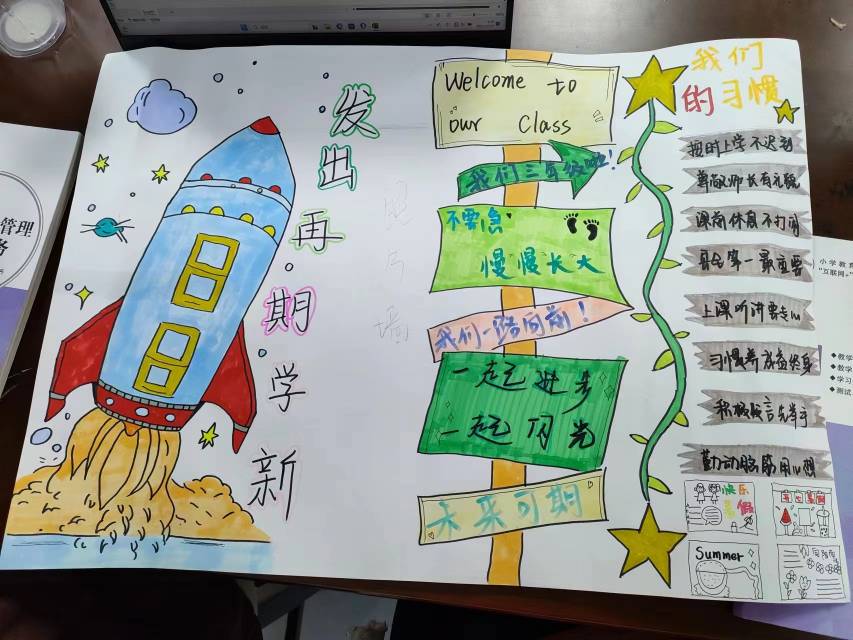 新学期再出发
Welcome to
our Class
我们三年级啦!
不要急
慢慢长大
我们一路向前!
一起进步
一起闪光
未来可期
我们
的习惯
按时上学不迟到
尊敬师长有礼貌
课间休息不打闹
安全第一最重要
上课听讲要专心
习惯养成益终身
积极发言先举手
勤动脑筋用心想
快乐
暑假
Summer
管理
小学教育
"互联网+"
◆教学
◆教学
◆学习
◆测试